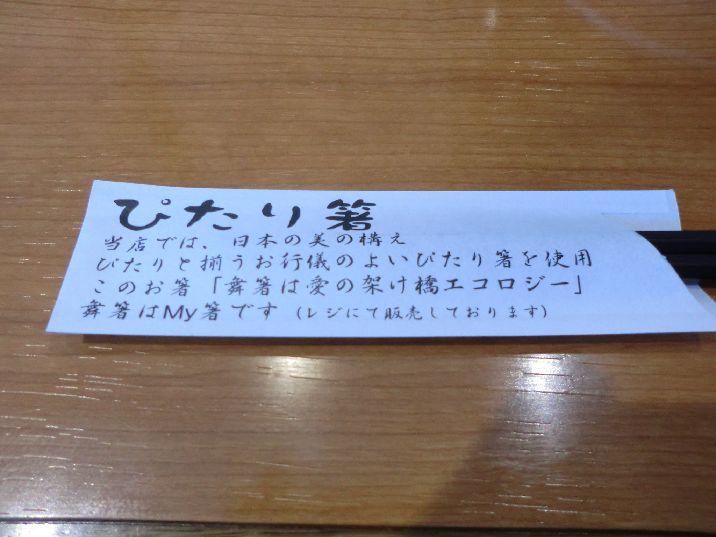 ぴたり箸
当店では、日本の美の構え
ぴたりと揃うお行儀のよいぴたり箸を使用
このお箸「舞箸は愛の架け橋エコロジー」
舞箸はMy箸です（レジにて販売しております）